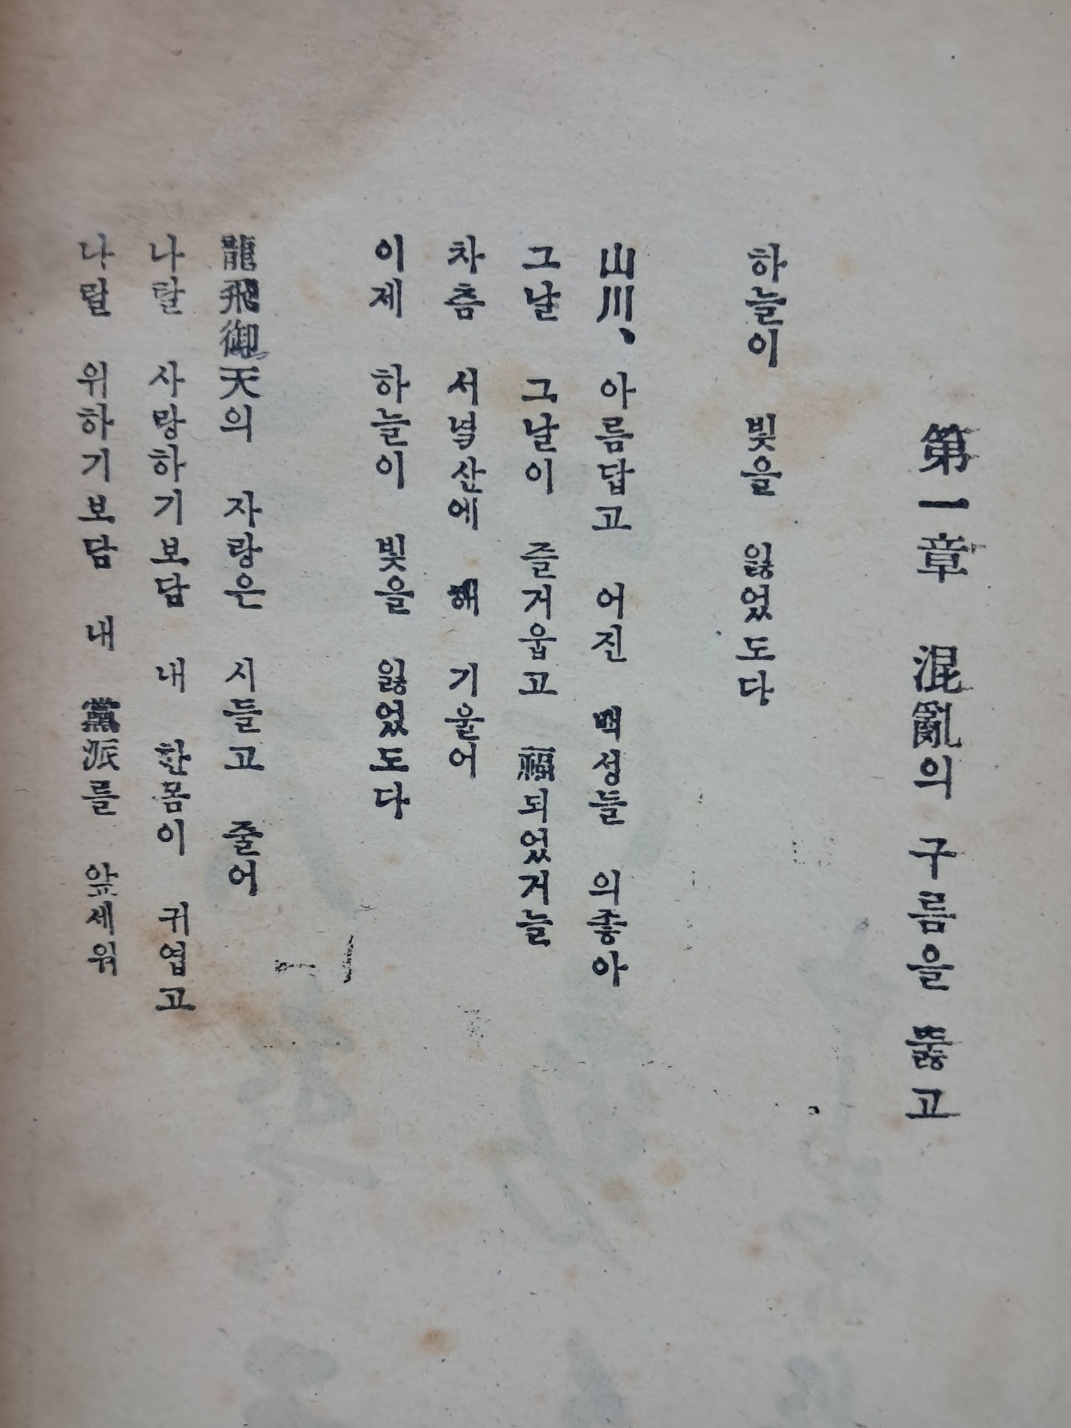 第一章 混亂의 구름을 뚫고
하늘이 빛을 잃었도다
山川、아름답고 어진 백성들 의좋아
그날 그날이 즐거웁고 福되었거늘
차츰 서녘산에 해 기울어
이제 하늘이 빛을 잃었도다
龍飛御天의 자랑은 시들고 줄어
나랄 사랑하기보담 내 한몸이 귀엽고
나랄 위하기보담 내 黨派를 앞세워